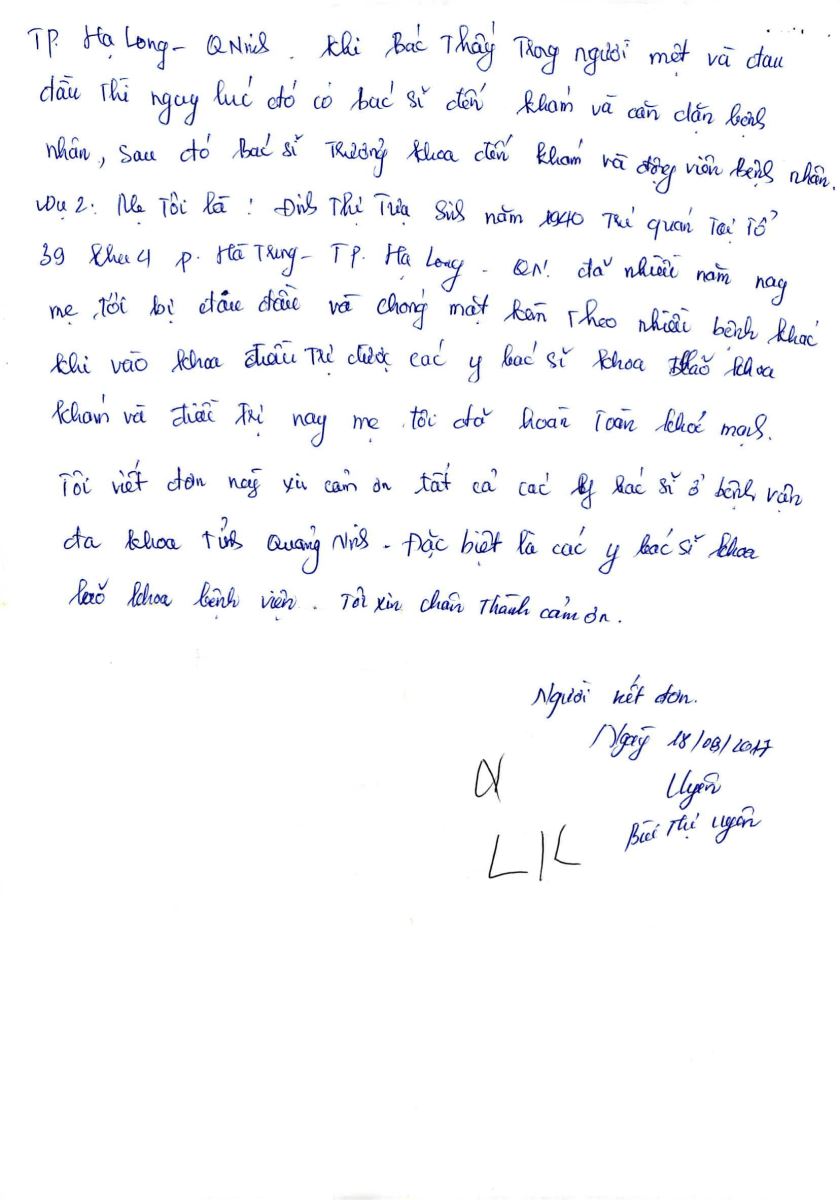 TP. Hạ Long - QNinh. Khi Bác Thấy Trong người mệt và đau
đầu Thì ngay lúc đó có bác sĩ đến khám và căn dặn bệnh
nhân, Sau đó bác sĩ Trưởng khoa đến khám và động viên bệnh nhân.
Vụ 2: Mẹ Tôi là! Đinh Thị Tựa Sinh năm 1940 Trú quán Tại Tổ
39 Khu 4 P. Hà Trung - TP. Hạ Long - QN. đã nhiều năm nay
mẹ tôi bị đau đầu và chóng mặt kèm Theo nhiều bệnh khác
khi vào khoa điều Trị được các y bác sĩ khoa lão khoa
khám và điều Trị nay mẹ tôi đã hoàn Toàn khoẻ mạnh.
Tôi viết đơn này xin cảm ơn tất cả các y bác sĩ ở bệnh viện
đa khoa Tỉnh Quảng Ninh - Đặc biệt là các y bác sĩ khoa
lão khoa bệnh viện. Tôi xin chân Thành cảm ơn.
Người viết đơn.
Ngày 18/08/2017
Uyên
Bùi Thị Uyên